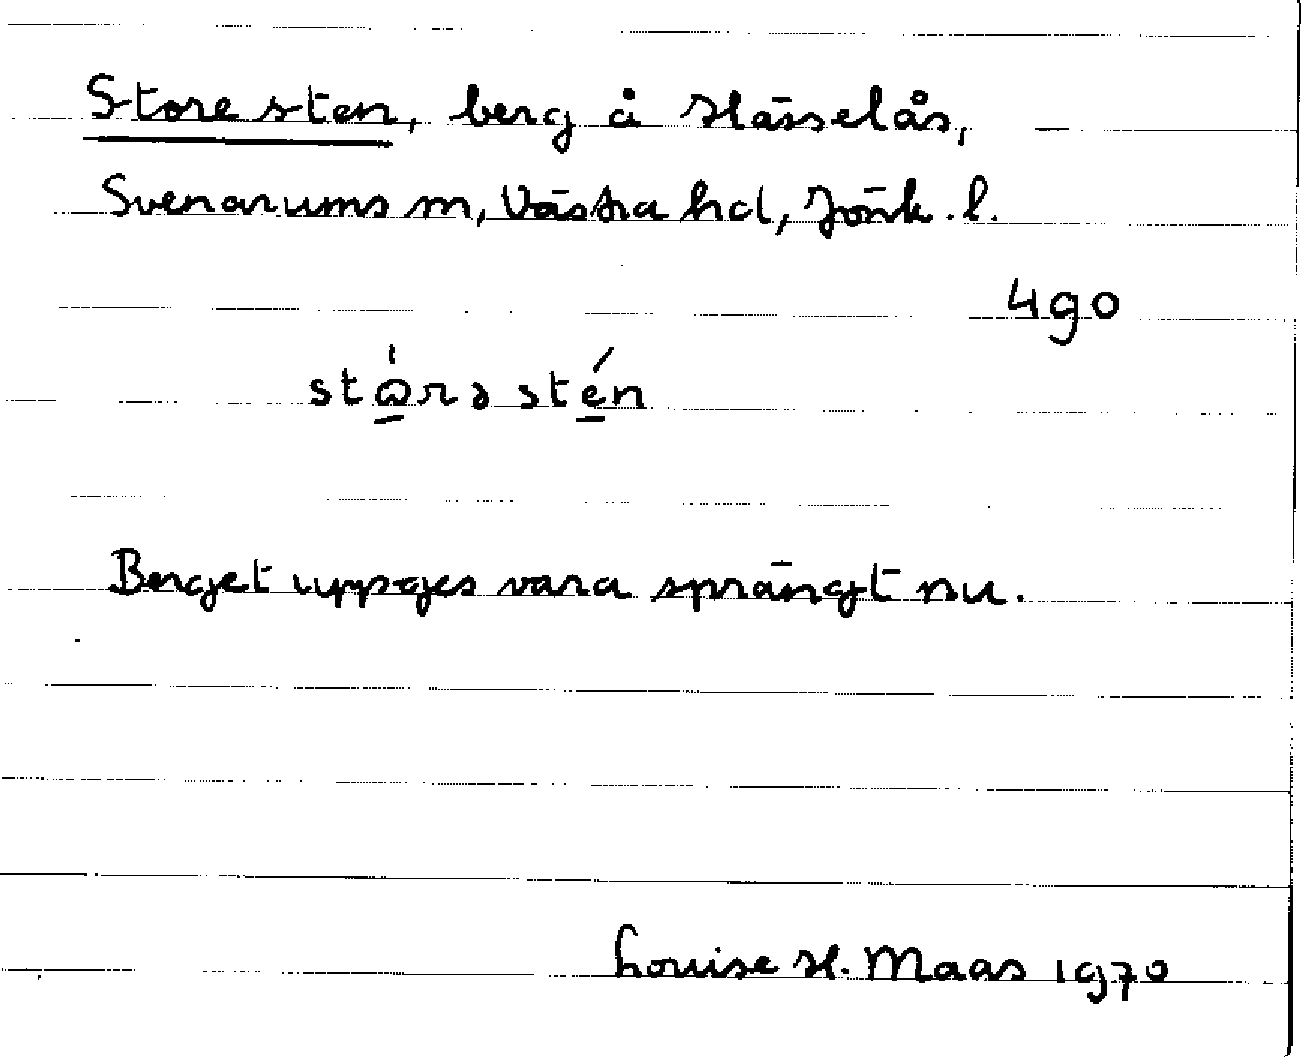 Store sten, berg å Hässelås,
Svenarums sn, Västra hd, Jönk. l.
4g0
stὼ̱rə sté̱n
Berget uppges vara sprängt nu.
Louise H. Maas 1970